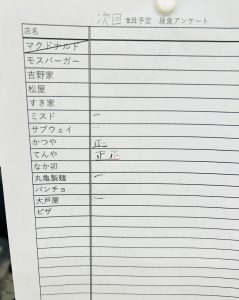 次回 8月予定 昼食アンケート
店名
マクドナルド
モスバーガー
吉野家
松屋
すき家
ミスド 一
サブウェイ 一
かつや 正一
てんや 正 正
なか卯
丸亀製麺 一
パンチョ
大戸屋 一
ピザ